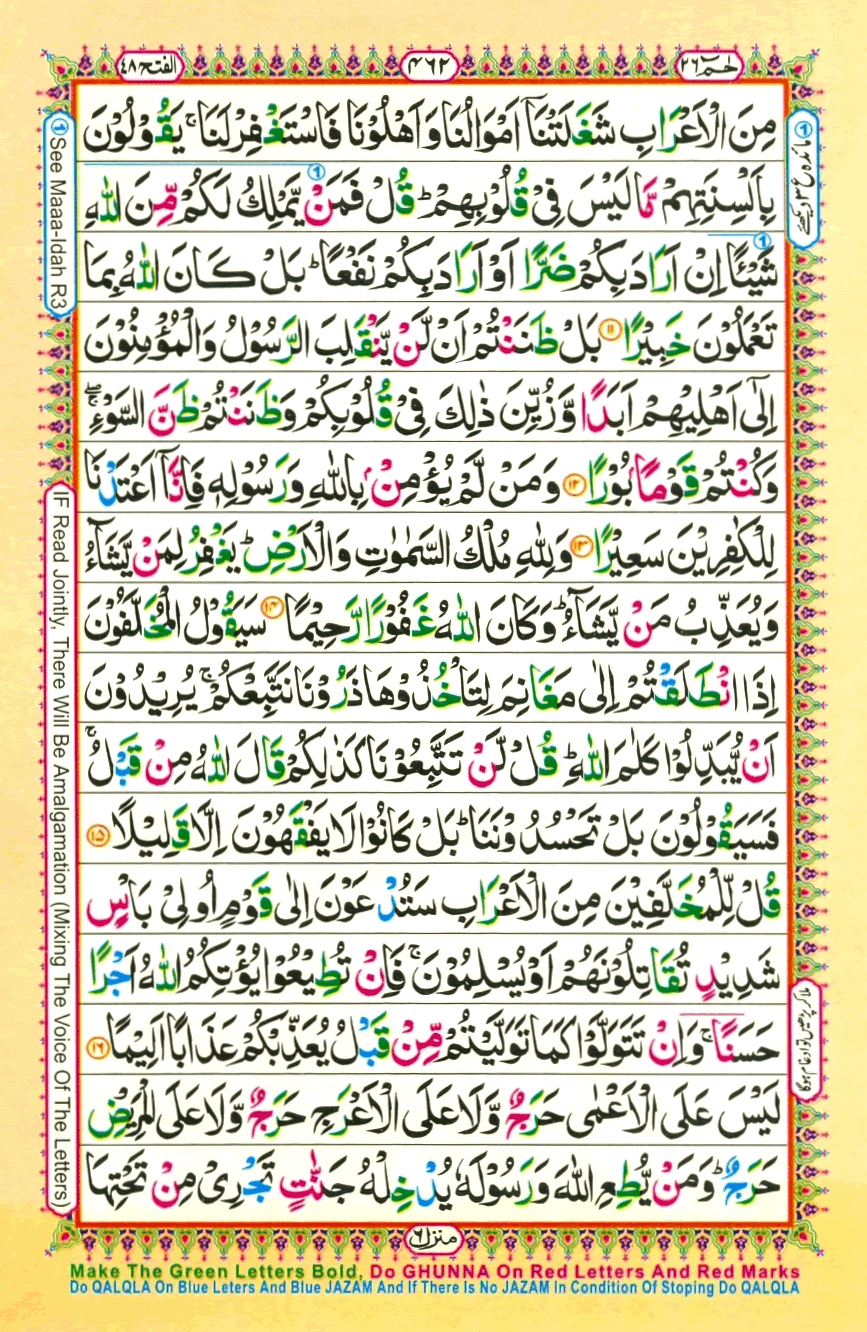 الفتح ٤٨
٤٦٢
حٰمٓ ٢٦
مِنَ الْاَعْرَابِ شَغَلَتْنَاۤ اَمْوَالُنَا وَاَهْلُوْنَا فَاسْتَغْفِرْلَنَا ۚ يَقُوْلُوْنَ
بِاَلْسِنَتِهِمْ مَّا لَيْسَ فِيْ قُلُوْبِهِمْ ؕ قُلْ فَمَنْ يَّمْلِكُ لَكُمْ مِّنَ اللّٰهِ
شَيْـًٔا اِنْ اَرَادَ بِكُمْ ضَرًّا اَوْ اَرَادَ بِكُمْ نَفْعًا ؕ بَلْ كَانَ اللّٰهُ بِمَا
تَعْمَلُوْنَ خَبِيْرًا ﴿۱۱﴾ بَلْ ظَنَنْتُمْ اَنْ لَّنْ يَّنْقَلِبَ الرَّسُوْلُ وَالْمُؤْمِنُوْنَ
اِلٰٓى اَهْلِيْهِمْ اَبَدًا وَّزُيِّنَ ذٰلِكَ فِيْ قُلُوْبِكُمْ وَظَنَنْتُمْ ظَنَّ السَّوْءِ ۖۚ
وَكُنْتُمْ قَوْمًۢا بُوْرًا ﴿۱۲﴾ وَمَنْ لَّمْ يُؤْمِنْۢ بِاللّٰهِ وَرَسُوْلِهٖ فَاِنَّاۤ اَعْتَدْنَا
لِلْكٰفِرِيْنَ سَعِيْرًا ﴿۱۳﴾ وَلِلّٰهِ مُلْكُ السَّمٰوٰتِ وَالْاَرْضِ ؕ يَغْفِرُ لِمَنْ يَّشَآءُ
وَيُعَذِّبُ مَنْ يَّشَآءُ ؕ وَكَانَ اللّٰهُ غَفُوْرًا رَّحِيْمًا ﴿۱۴﴾ سَيَقُوْلُ الْمُخَلَّفُوْنَ
اِذَا انْطَلَقْتُمْ اِلٰى مَغَانِمَ لِتَاْخُذُوْهَا ذَرُوْنَا نَتَّبِعْكُمْ ۚ يُرِيْدُوْنَ
اَنْ يُّبَدِّلُوْا كَلٰمَ اللّٰهِ ؕ قُلْ لَّنْ تَتَّبِعُوْنَا كَذٰلِكُمْ قَالَ اللّٰهُ مِنْ قَبْلُ ۚ
فَسَيَقُوْلُوْنَ بَلْ تَحْسُدُوْنَنَا ؕ بَلْ كَانُوْا لَا يَفْقَهُوْنَ اِلَّا قَلِيْلًا ﴿۱۵﴾
قُلْ لِّلْمُخَلَّفِيْنَ مِنَ الْاَعْرَابِ سَتُدْعَوْنَ اِلٰى قَوْمٍ اُولِيْ بَاْسٍ
شَدِيْدٍ تُقَاتِلُوْنَهُمْ اَوْ يُسْلِمُوْنَ ۚ فَاِنْ تُطِيْعُوْا يُؤْتِكُمُ اللّٰهُ اَجْرًا
حَسَنًا ۚ وَاِنْ تَتَوَلَّوْا كَمَا تَوَلَّيْتُمْ مِّنْ قَبْلُ يُعَذِّبْكُمْ عَذَابًا اَلِيْمًا ﴿۱۶﴾
لَيْسَ عَلَى الْاَعْمٰى حَرَجٌ وَّلَا عَلَى الْاَعْرَجِ حَرَجٌ وَّلَا عَلَى الْمَرِيْضِ
حَرَجٌ ؕ وَمَنْ يُّطِعِ اللّٰهَ وَرَسُوْلَهٗ يُدْخِلْهُ جَنّٰتٍ تَجْرِيْ مِنْ تَحْتِهَا
① مائدہ ع ٣ دیکھئے
ملا کر پڑھیں تو ادغام ہوگا
① See Maaa-Idah R3
IF Read Jointly, There Will Be Amalgamation (Mixing The Voice Of The Letters)
منزل ٦
Make The Green Letters Bold, Do GHUNNA On Red Letters And Red Marks
Do QALQLA On Blue Leters And Blue JAZAM And If There Is No JAZAM In Condition Of Stoping Do QALQLA